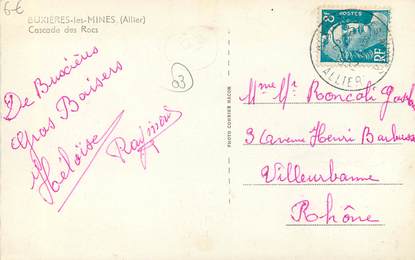 6€
BUXIÈRES-les-MINES (Allier)
Cascade des Rocs
De Buxières
Gros Baisers
Héloïse
Raymond
03
PHOTO COMBIER MACON
8F
POSTES
RF
ALLIER
Mme Mr Roncoli
3 Avenue Henri Barbusse
Villeurbanne
Rhône